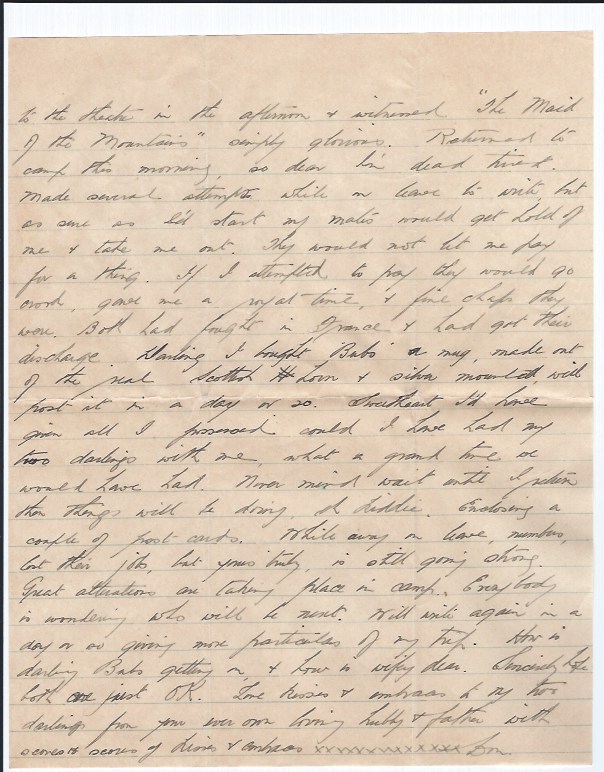 to the theatre in the afternoon & witnessed "The Maid
of the Mountains" simply glorious. Returned to
camp this morning, so dear I'm dead tired.
Made several attempts while on leave to write but
as sure as I'd start my mates would get hold of
me & take me out. They would not let me pay
for a thing. If I attempted to pay they would go
crook, gave me a royal time, & fine chaps they
were. Both had fought in France & had got their
discharge. Darling I bought Babs a mug, made out
of the real Scottish Horn & silver mounted, will
post it in a day or so. Sweetheart I'd have
given all I possessed could I have had my
two darlings with me, what a grand time we
would have had. Never mind wait until I return
then things will be doing eh Liddie. Enclosing a
couple of post cards. While away on leave, numbers,
lost their jobs, but yours truly, is still going strong.
Great alterations are taking place in camp. Everybody
is wondering who will be next. Will write again in a
day or so giving more particulars of my trip. How is
darling Babs getting on, & how is wifey dear. Sincerely hope
both are just OK. Love kisses & embraces to my two
darlings from your ever own loving hubby & father with
scores & scores of kisses & embraces xxxxxxxxxxxxxxxx